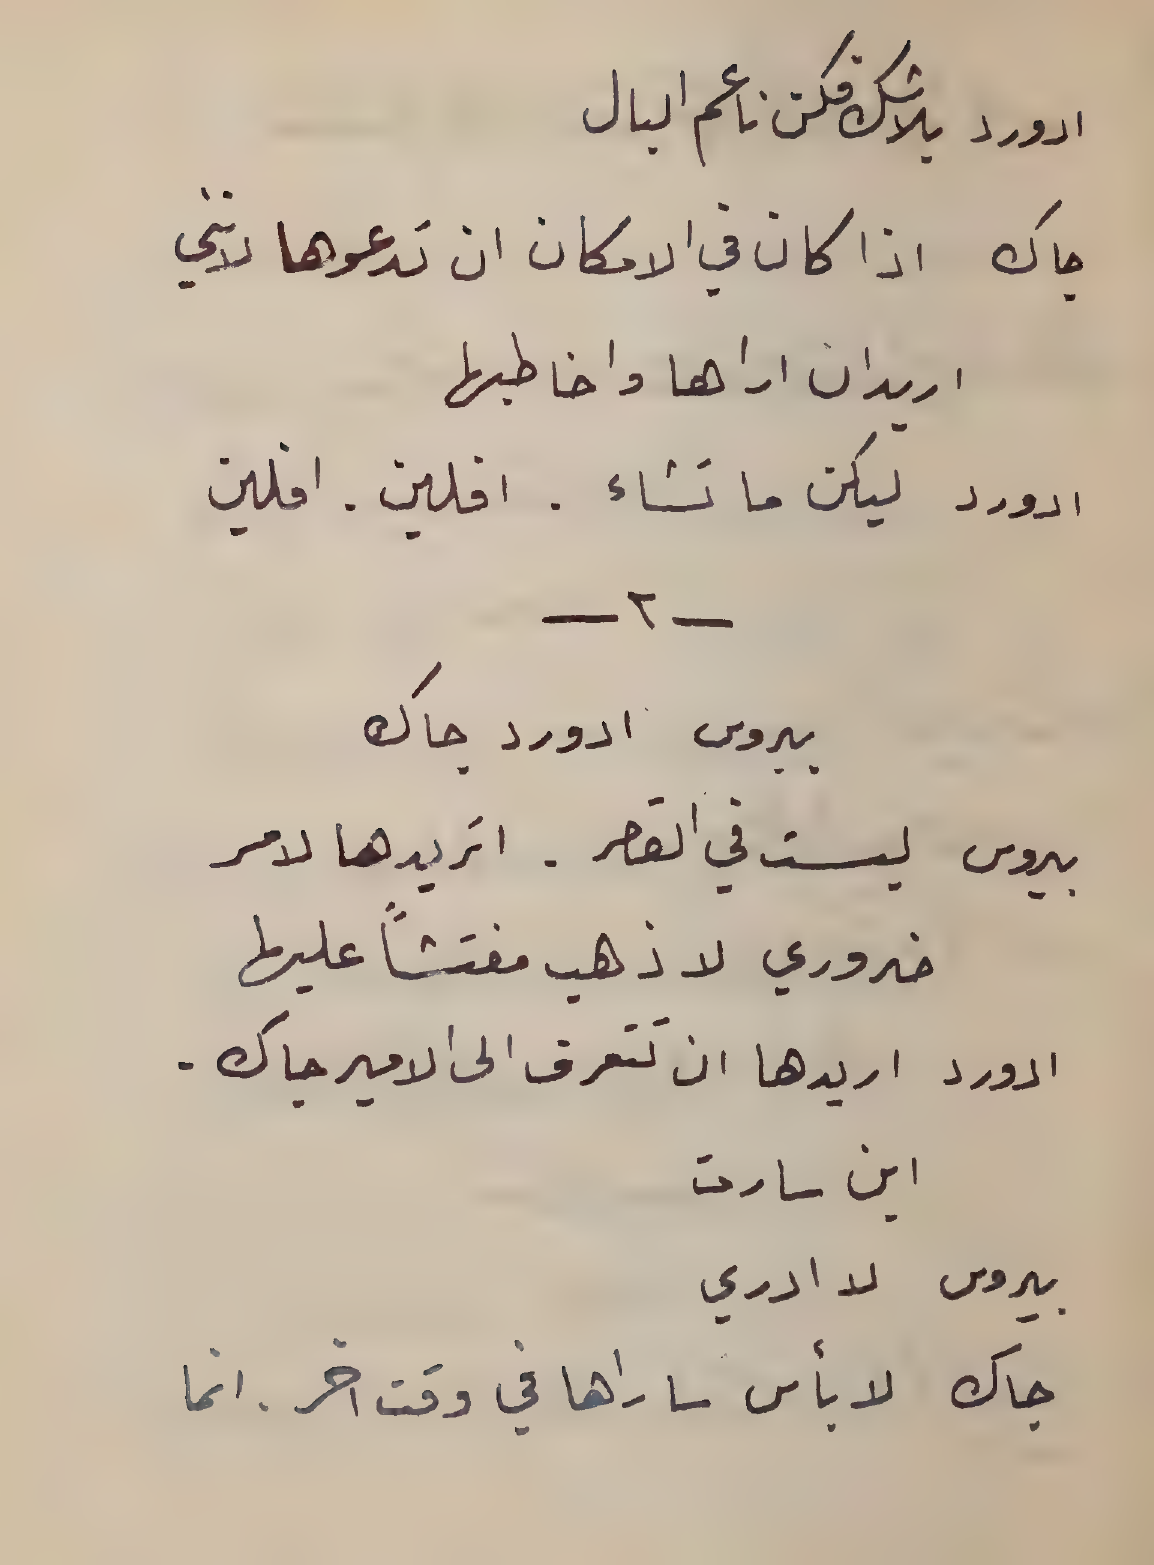 ادورد بلا شك فكن ناعم البال
جاك اذا كان في الامكان ان تدعوها لانني
اريد ان اراها واخاطبها
ادورد ليكن ما تشاء . افلين . افلين
— ٢ —
بيروس ادورد جاك
بيروس ليست في القصر . اتريدها لامر
ضروري لاذهب مفتشاً عليها
ادورد اريدها ان تتعرف الى الامير جاك .
اين سارت
بيروس لا ادري
جاك لا بأس ساراها في وقت اخر . انما